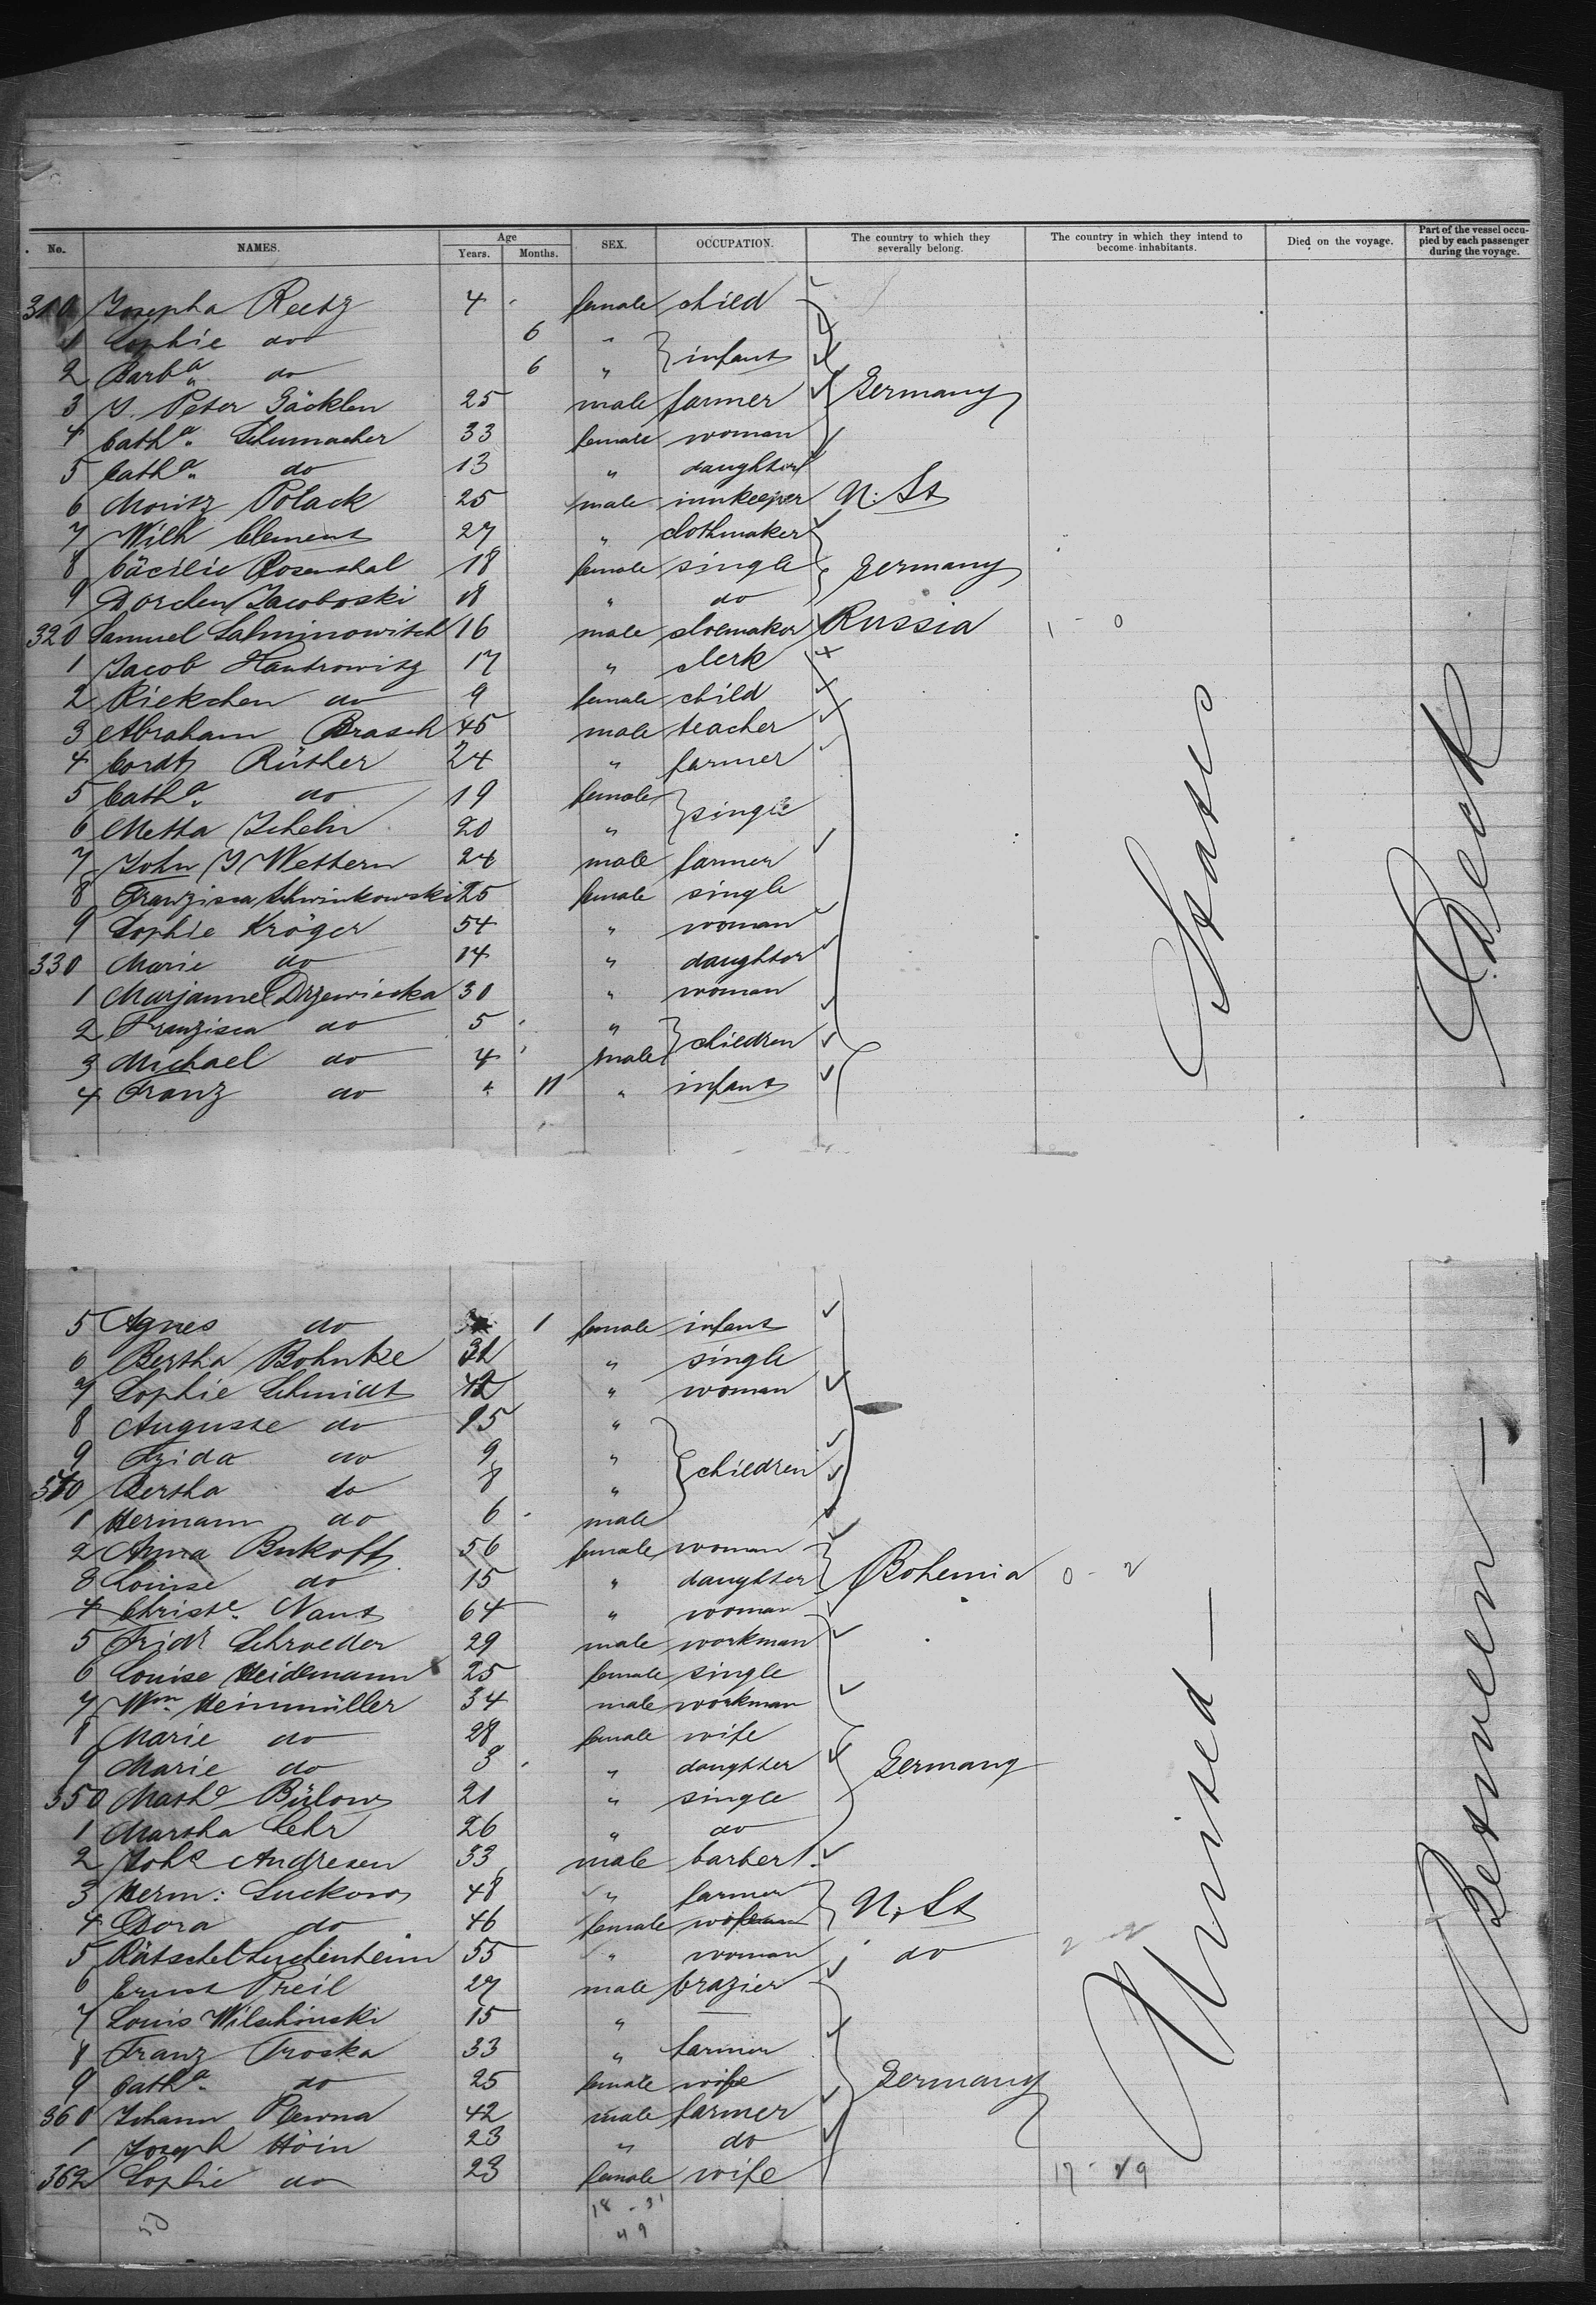 No. NAMES. Age Years. Months. SEX. OCCUPATION. The country to which they severally belong. The country in which they intend to become inhabitants. Died on the voyage. Part of the vessel occupied by each passenger during the voyage.
310 Josepha Reetz 4 female child
1 Sophie do 6 "
2 Barba do 6 " infants
3 J. Peter Gäcklen 25 male farmer Germany
4 Catha. Schumacher 33 female woman
5 Catha. do 13 " daughter
6 Moritz Polack 25 male innkeeper N: St
7 Wilh Clement 27 " clothmaker
8 Cäcilie Rosenthal 18 female single Germany
9 Dorchen Jacoboski 18 " do
320 Samuel Salminowitch 16 male shoemaker Russia 1 - 0
1 Jacob Hantrowitz 17 " clerk
2 Riekchen do 9 female child
3 Abraham Brasch 45 male teacher
4 Cordt Rüther 24 " farmer
5 Catha. do 19 female
6 Metta 20 " single
7 John J Wettern 24 male farmer
8 Franzisca Schwinkowski 25 female single
9 Sophie Kröger 54 " woman
330 Marie do 14 " daughter
1 Marjanne Drzewiecka 30 " woman
2 Franzisca do 5 "
3 Michael do 4 male children
4 Franz do " 11 " infant
5 Agnes do 1 female infant
6 Bertha Bohnke " single
7 Sophie Schmidt 42 " woman
8 Auguste do 15 "
9 do 9 "
340 Bertha do 8 " children
1 Hermann do 6 male
2 Anna Bukoff 56 female woman
3 Louise do 15 " daughter Bohemia 0 - 2
4 Christe. Naut 64 " woman
5 Fridr Schroeder 29 male workman
6 Louise Heidemann 25 female single
7 Wm. Heinmüller 34 male workman
8 Marie do 28 female wife
9 Marie do 3 " daughter Germany
350 Matha Bülow 21 " single
1 Martha Lehr 26 " do
2 Johs Andresen 33 male barber
3 Herm: Luckow 48 " farmer
4 Dora do 46 female N. St
5 Rätschel Luchenheim 55 " woman do 2 - 2
6 Ernst Preil 27 male brazier
7 Louis Wilschinski 15 "
8 Franz Troska 33 " farmer
9 Catha. do 25 female wife Germany
360 Johann Plewna 42 male farmer
1 Joseph Höin 23 " do
362 Sophie do 23 female wife 17 - 29
18 - 31
50
49
United — States
Between — Deck